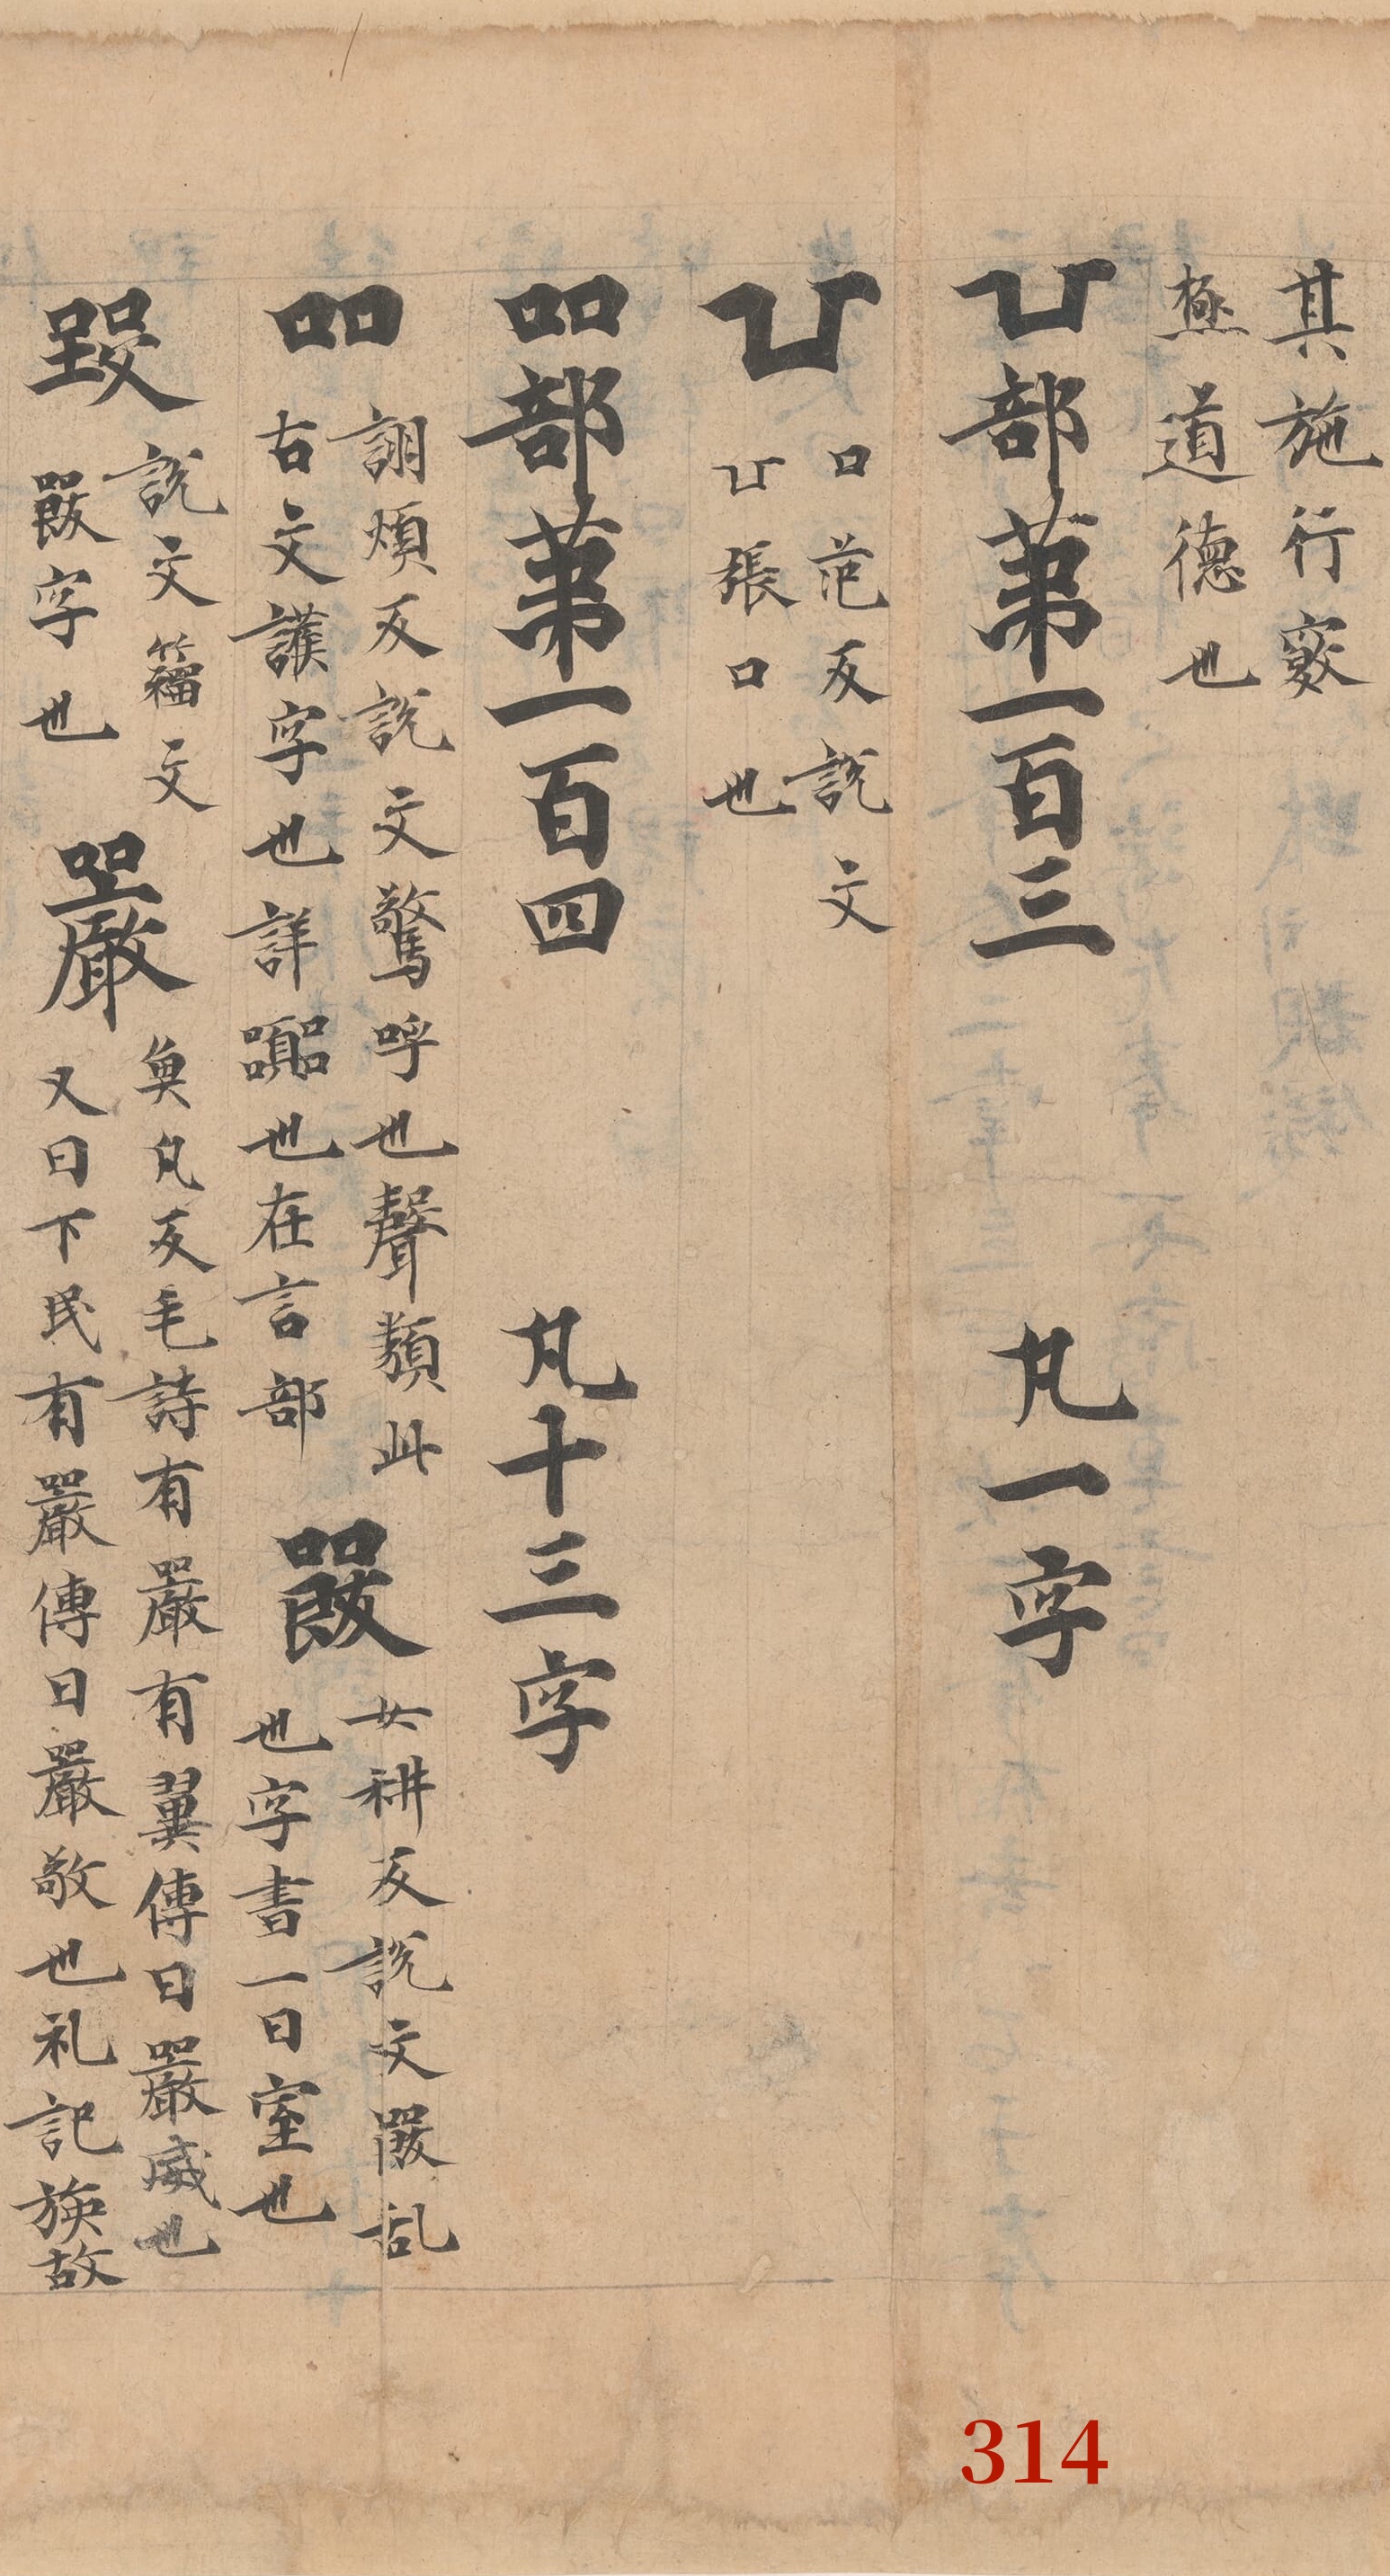 其施行竅
極道德也
凵部苐一百三 凡一字
凵 口范反說文
凵張口也
吅部苐一百四 凡十三字
吅 詡煩反說文驚呼也聲類此
古文讙字也詳嚻也在言部
㗲 女耕反說文㗲乱
也字書一曰窒也
說文籀文
㗲字也
嚴 魚凡反毛詩有嚴有翼傳曰嚴威也
又曰下民有嚴傳曰嚴敬也礼記族故
314